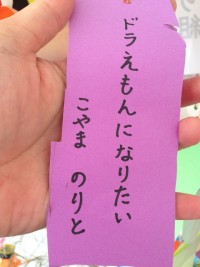 ドラえもんになりたい
こやま のりと